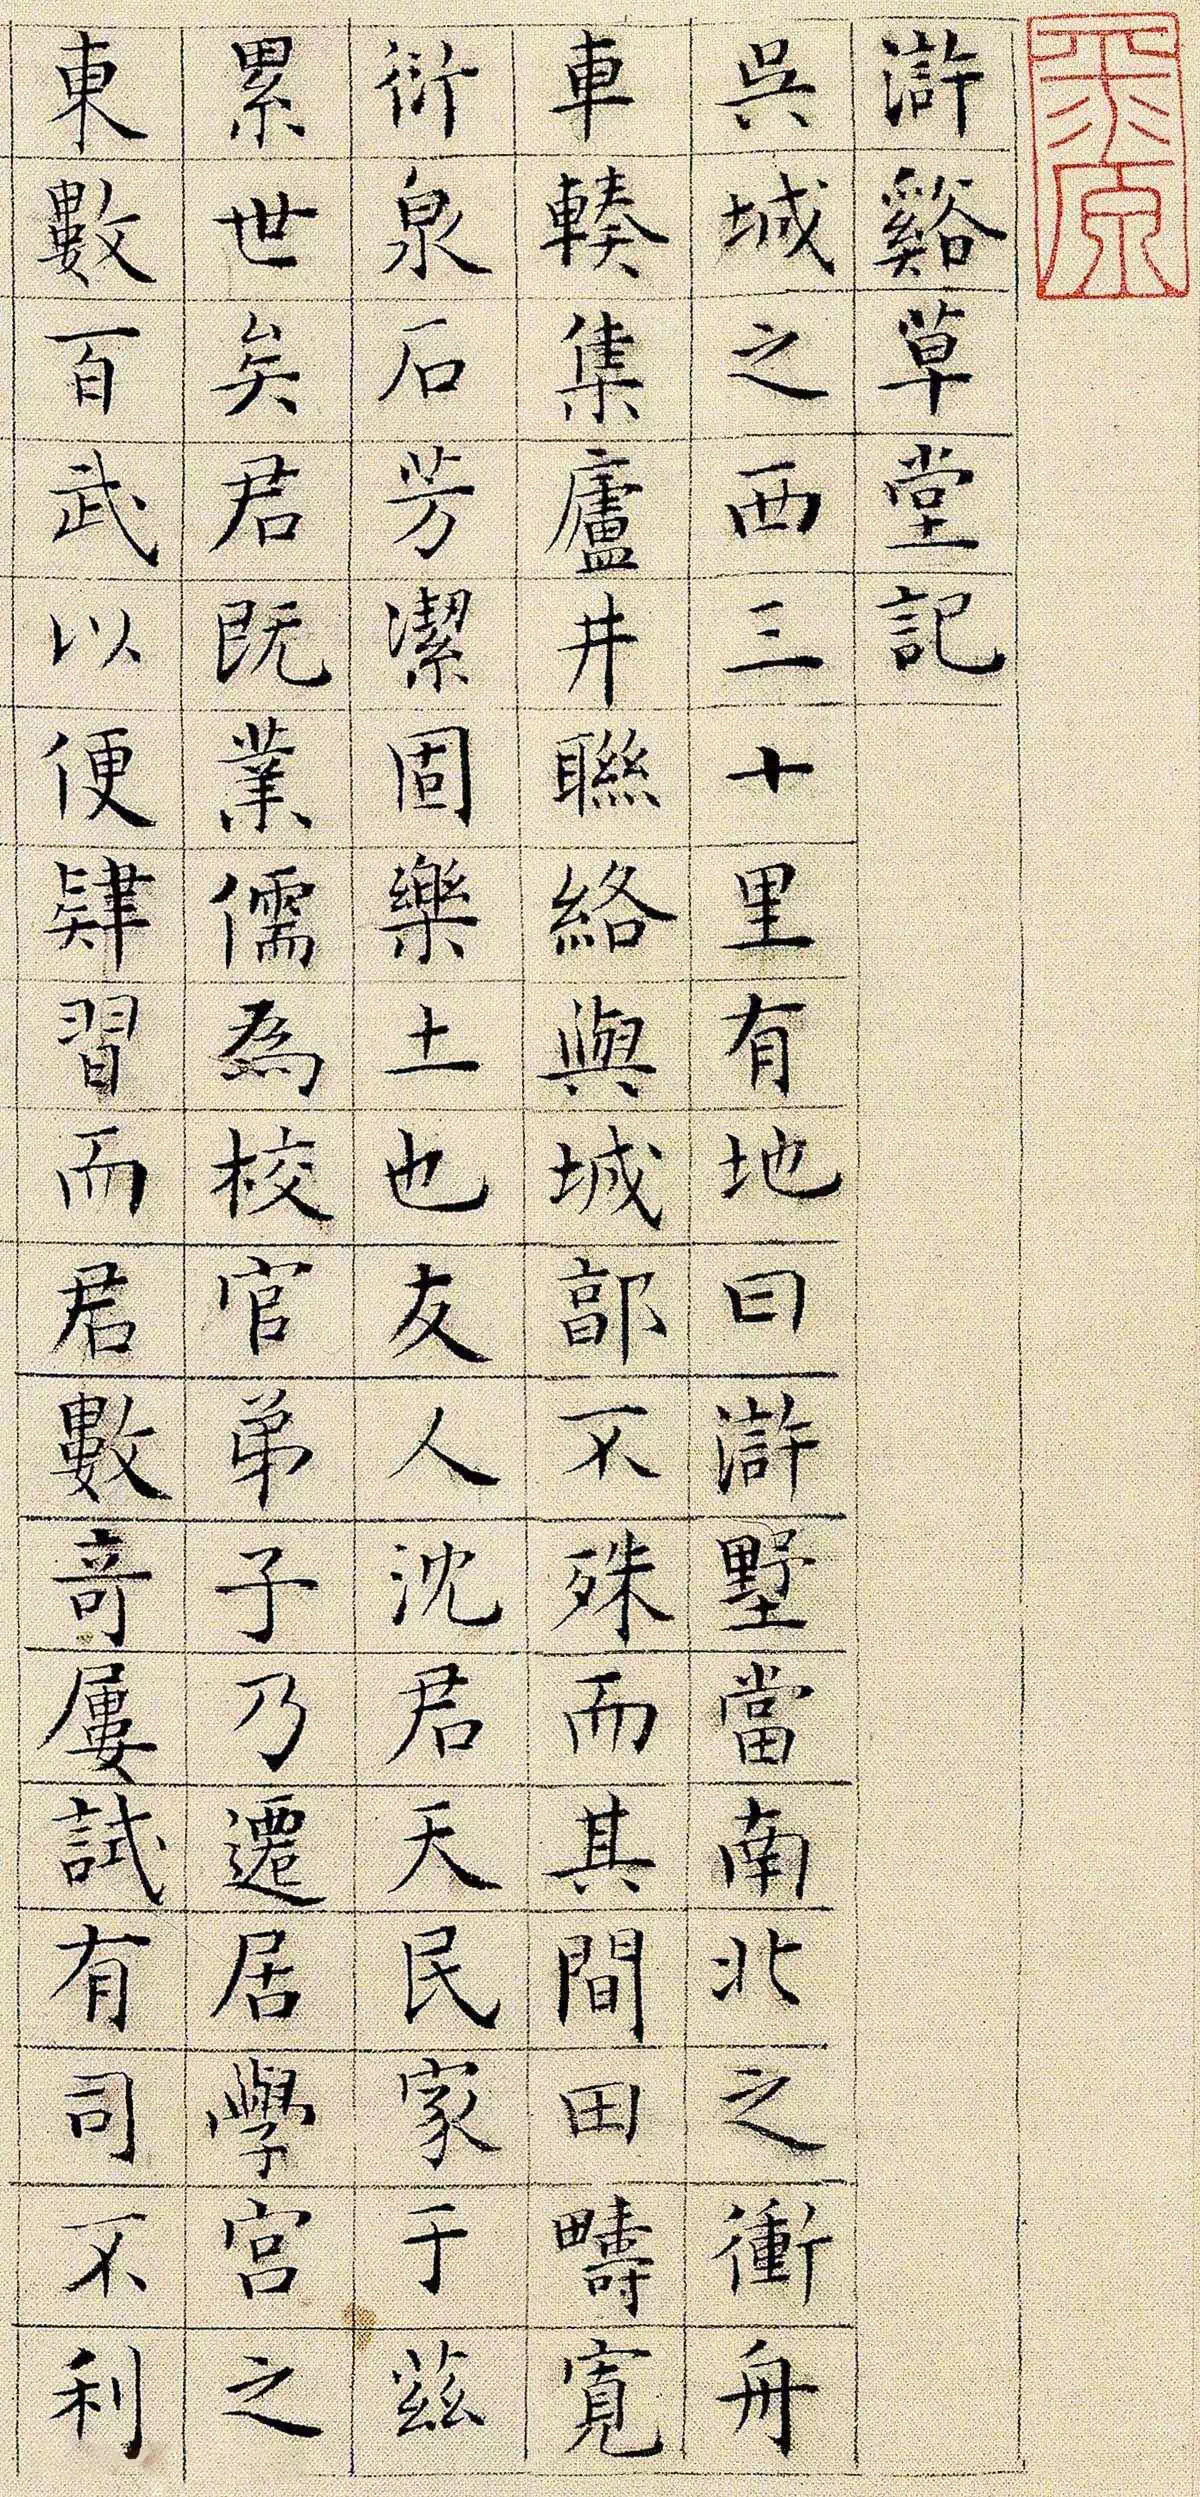 滸谿草堂記
吳城之西三十里有地曰滸墅當南北之衝舟
車輳集廬井聯絡與城郭不殊而其間田疇寬
衍泉石芳潔固樂土也友人沈君天民家于茲
累世矣君既業儒為校官弟子乃遷居學宮之
東數百武以便肄習而君數奇屢試有司不利